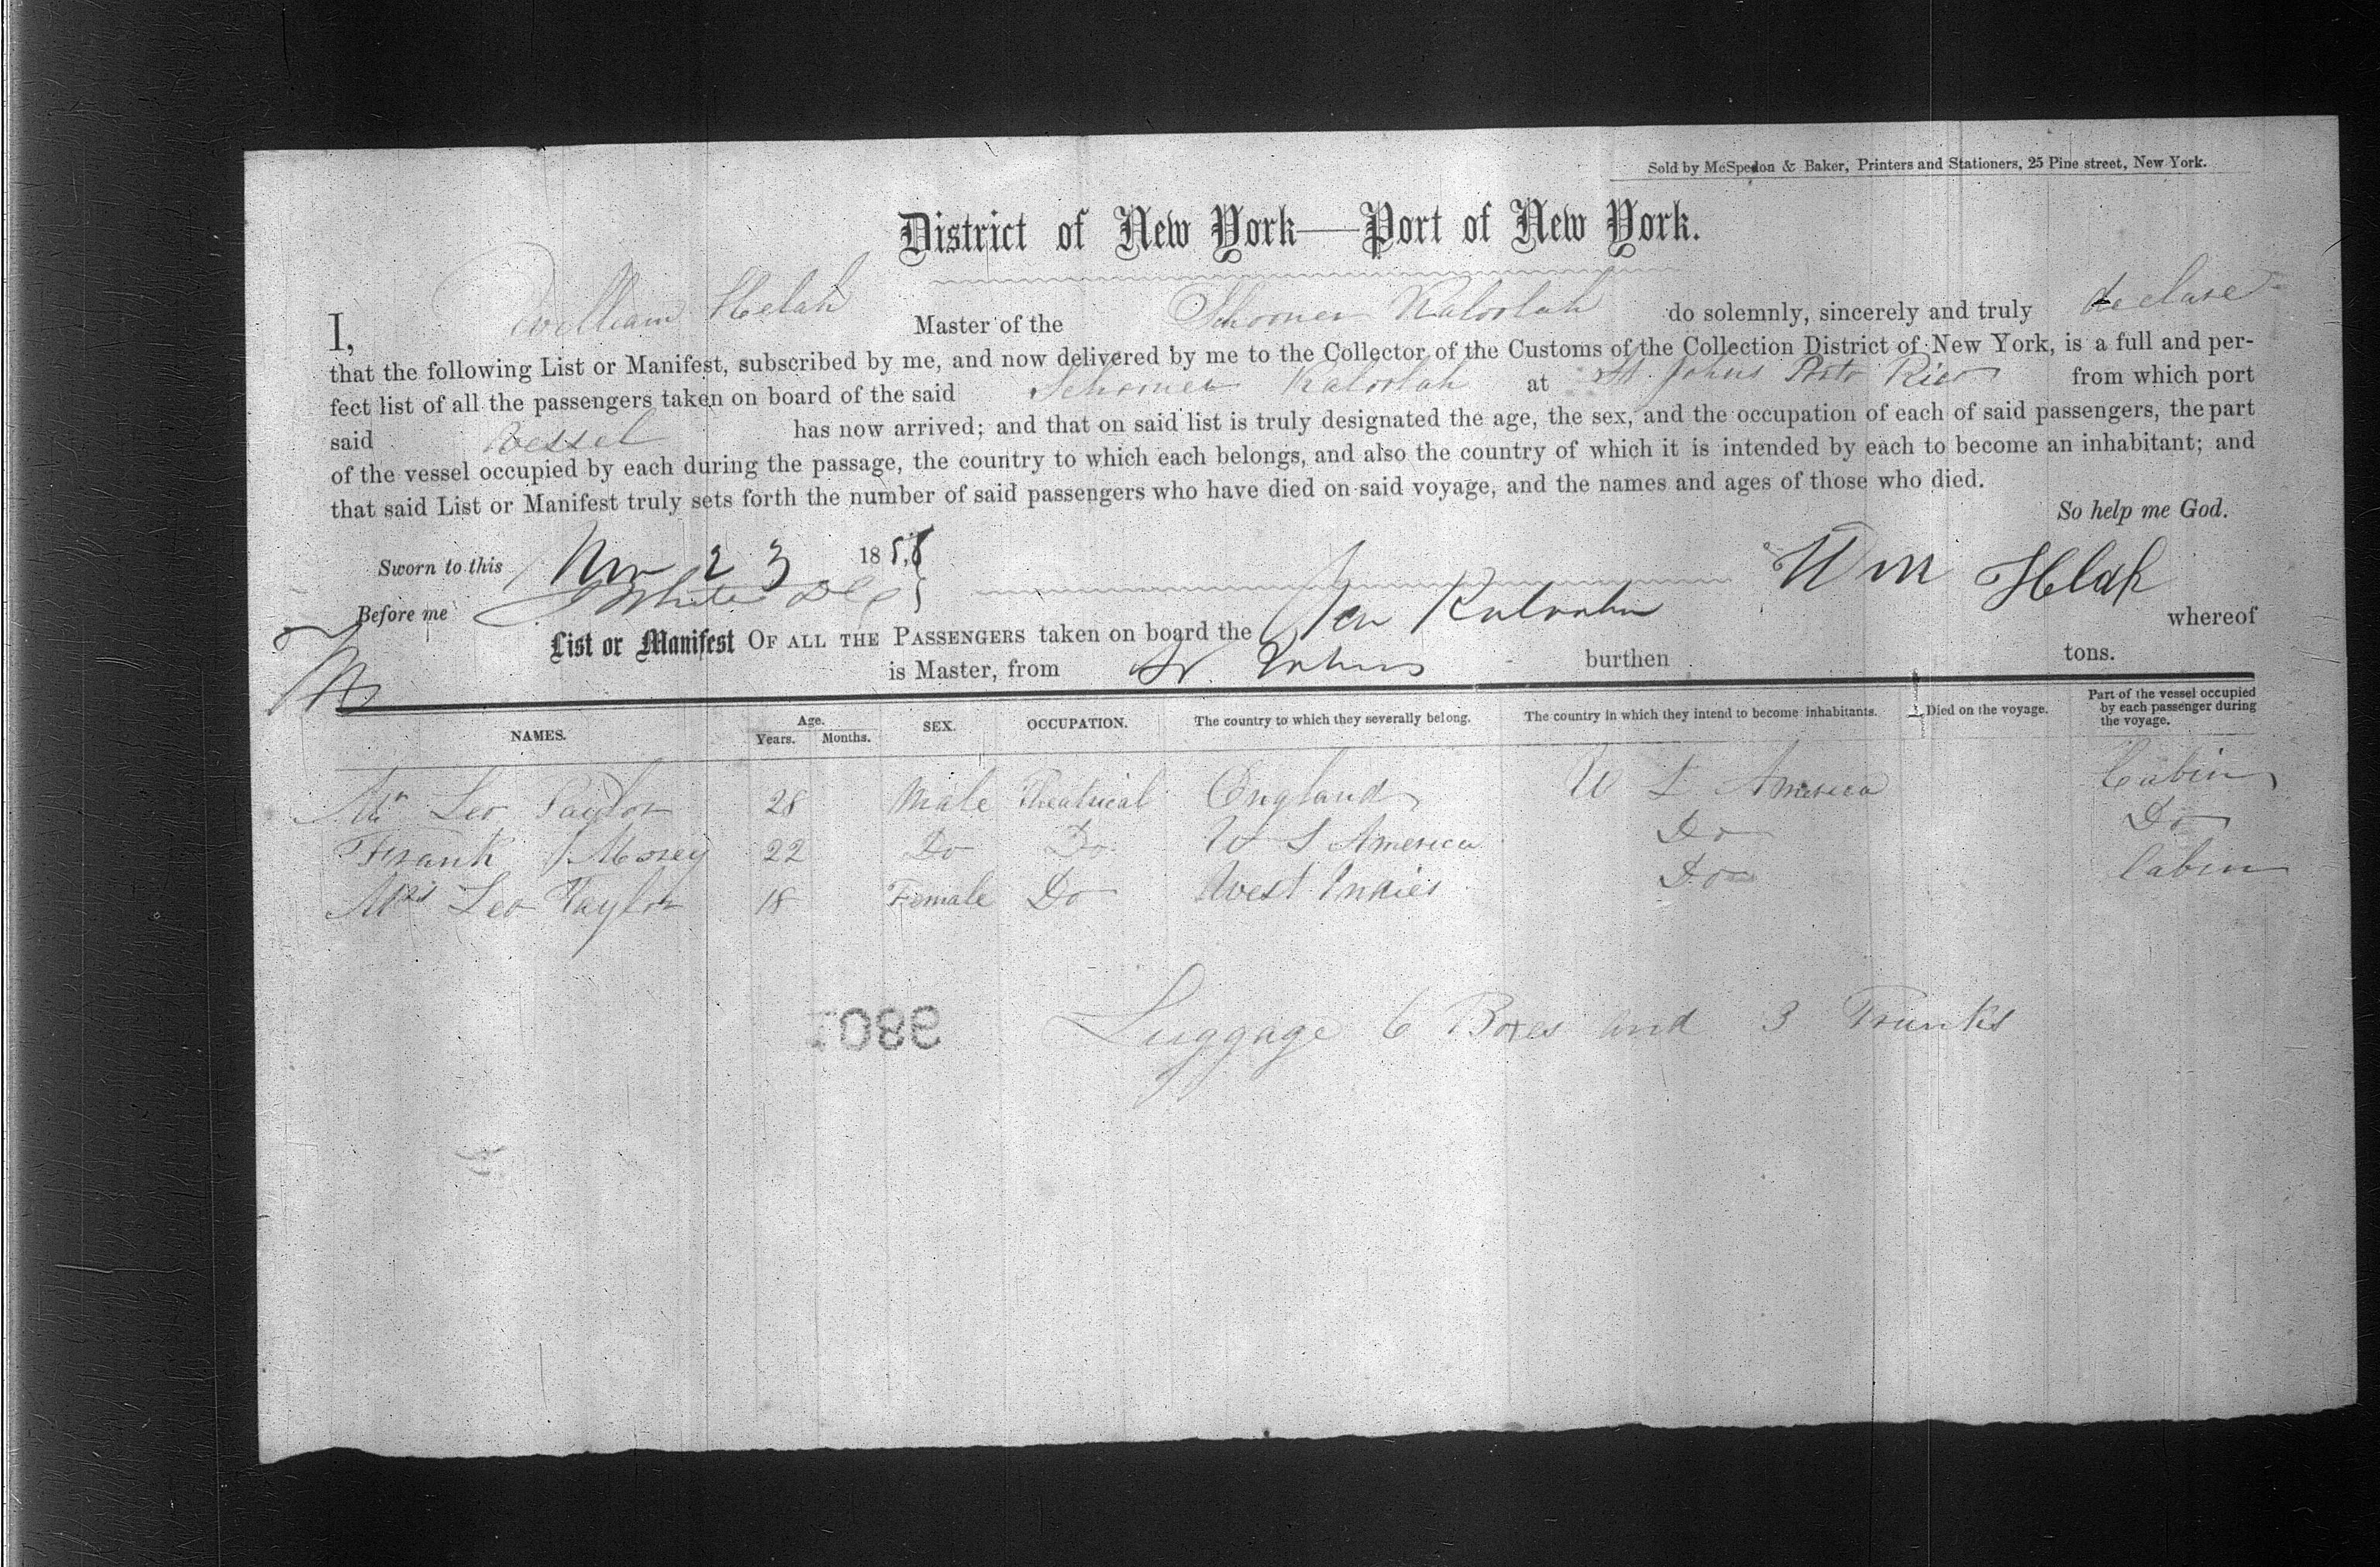 Sold by McSpedon & Baker, Printers and Stationers, 25 Pine street, New York.
District of New York—Port of New York.
I, William Helah Master of the Schooner Kaloolah do solemnly, sincerely and truly declare
that the following List or Manifest, subscribed by me, and now delivered by me to the Collector of the Customs of the Collection District of New York, is a full and per-
fect list of all the passengers taken on board of the said Schooner Kaloolah at St. Johns Porto Rico from which port
said Vessel has now arrived; and that on said list is truly designated the age, the sex, and the occupation of each of said passengers, the part
of the vessel occupied by each during the passage, the country to which each belongs, and also the country of which it is intended by each to become an inhabitant; and
that said List or Manifest truly sets forth the number of said passengers who have died on said voyage, and the names and ages of those who died.
So help me God.
Sworn to this Nov 23 1858
Before me J White Wm Helah
List or Manifest OF ALL THE PASSENGERS taken on board the Kaloolah whereof
is Master, from St. Johns burthen tons.
NAMES. Age. Years. Months. SEX. OCCUPATION. The country to which they severally belong. The country in which they intend to become inhabitants. Died on the voyage. Part of the vessel occupied by each passenger during the voyage.
Mr Leo Taylor 28 Male Theatrical England U S America Cabin
Frank Morey 22 Do Do U S America Do Do
Mrs Leo Taylor 18 Female Do West Indies Do Cabin
Luggage 6 Boxes and 3 Trunks